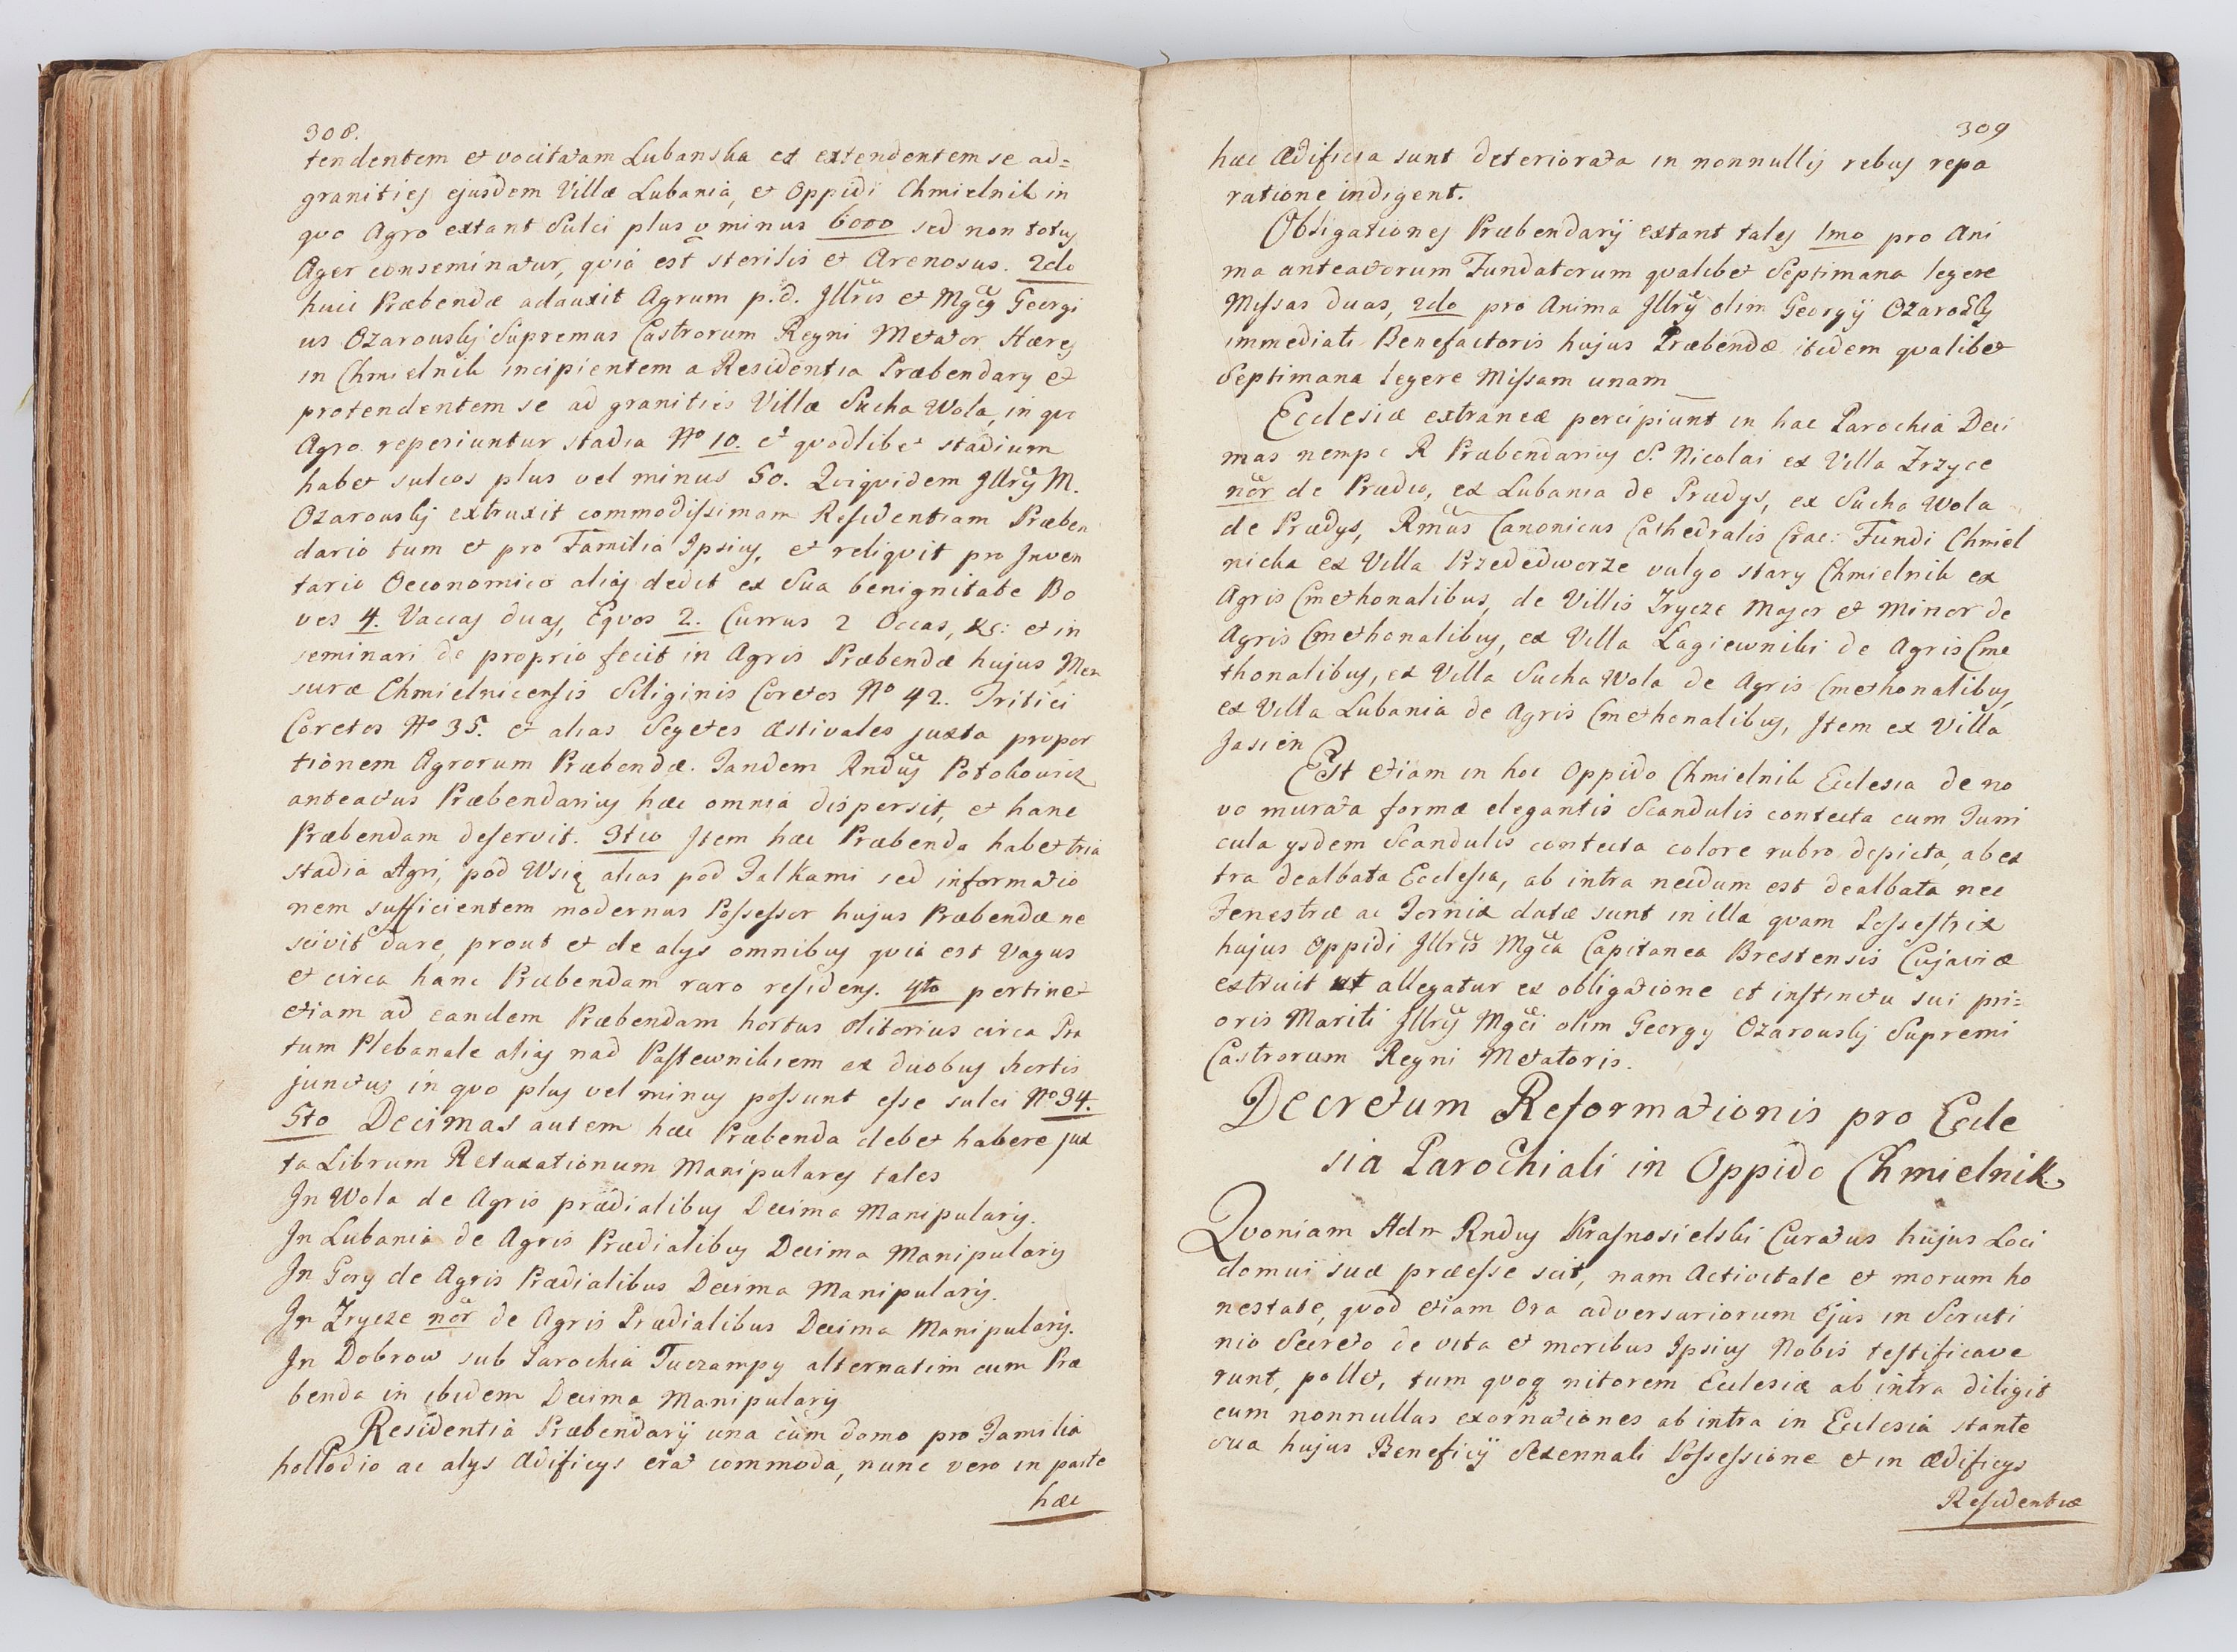 308.
tendentem et vocitatam Lubanska et extendentem se ad=
granities ejusdem Villæ Lubania, et Oppidi Chmielnik in
quo Agro extant Sulci plus v minus 6000 sed non totus
Ager conseminatur, quia est sterilis et Arenosus. 2do
huic Præbendæ adauxit Agrum p.d. Jllris et Mgcg Georgi
us Ozarousky Supremus Castrorum Regni Metator Hæres
in Chmielnik incipientem a Residentia Præbendary et
protendentem se ad granities Villæ Sucha Wola, in quo
Agro reperiuntur stadia No 10. et quodlibet stadium
habet sulcos plus vel minus 50. Quiquidem Jllrg M.
Ozarousky extruxit commodissimam Residentiam Præben
dario tum et pro Familia Ipsius, et reliquit pro Juven
tario Oeconomico alias dedit ex Sua benignitate Bo
ves 4. Vaccas duas, Equos 2. Currus 2 Occas, &c: et in
seminari de proprio fecit in Agris Præbendæ hujus Men
suræ Chmielnicensis Siliginis Coretos No 42. Tritici
Coretos No 35. et alias Segetes Æstivales juxta propor
tionem Agrorum Præbendæ. Tandem Rndus Potokowicz
anteactus Præbendarius hæc omnia dispersit, et hanc
Præbendam deservit. 3tio Item hæc Præbenda habet tria
stadia Agri, pod Wsią alias pod Jalkami sed informatio
nem sufficientem modernus Possessor hujus Præbendæ ne
scivit dare, prout et de alys omnibus quia est Vagus
et circa hanc Præbendam raro residens. 4to pertinet
etiam ad eandem Præbendam hortus olitorius circa Pra
tum Plebanale alias nad Pastewnikiem ex duobus hortis
junctus in quo plus vel minus possunt esse sulci No 34.
5to Decimas autem hæc Præbenda debet habere jux
ta Librum Retaxationum Manipulares tales
In Wola de Agris prædialibus Decima Manipularis.
In Lubania de Agris Prædialibus Decima Manipularis
In Gory de Agris Prædialibus Decima Manipularis.
In Zrycze nor de Agris Prædialibus Decima Manipularis.
In Dobrow sub Parochia Tuczampy alternatim cum Præ
benda in ibidem Decima Manipularis
Residentia Præbendarÿ una cum domo pro Familia
hollodio ac alys Ædificys erat commoda, nunc vero in parte
hæc
309
hæc Ædificia sunt deteriorata in nonnullis rebus repa
ratione indigent.
Obligationes Præbendarÿ extant tales 1mo pro Ani
ma anteatorum Fundatorum qualibet Septimana legere
Missas duas, 2do pro Anima Jllrÿ olim Georgÿ Ozarosky
immediati Benefactoris hujus Præbendæ ibidem qualibet
Septimana legere Missam unam
Ecclesiæ extraneæ percipiunt in hac Parochia Deci
mas nempe R Præbendarius S. Nicolai ex Villa Zrzyce
nor de Prædio, ex Lubania de Prædys, ex Sucha Wola
de Prædys, Rmus Canonicus Cathedralis Crac: Fundi Chmiel
nicka ex Villa Przededworze vulgo stary Chmielnik ex
Agris Cmethonalibus, de Villis Zrycze Major et Minor de
Agris Cmethonalibus, ex Villa Lagiewniki de Agris Cme
thonalibus, ex Villa Sucha Wola de Agris Cmethonalibus,
ex Villa Lubania de Agris Cmethonalibus, Jtem ex Villa
Jasien
Est etiam in hoc Oppido Chmielnik Ecclesia de no
vo murata formæ elegantis Scandulis contecta cum Turri
cula ysdem Scandulis contecta colore rubro depicta, ab ex
tra dealbata Ecclesia, ab intra necdum est dealbata nec
Fenestræ ac Fornix datæ sunt in illa quam Possestrix
hujus Oppidi Jllris Mgca Capitanea Brestensis Cujaviæ
extruit ut allegatur ex obligatione et instinctu sui pri=
oris Mariti Jllrÿ Mgci olim Georgy Ozarousky Supremi
Castrorum Regni Metatoris.
Decretum Reformationis pro Eccle
sia Parochiali in Oppido Chmielnik.
Quoniam Adm Rndus Krasnosielski Curatus hujus Loci
domui suæ præesse scit, nam Activitate et morum ho
nestate, quod etiam Ora adversariorum Ejus in Scruti
nio Secreto de vita et moribus Ipsius Nobis testificave
runt, pollet, tum quoq nitorem Ecclesiæ ab intra diligit
cum nonnullas exornationes ab intra in Ecclesia stante
sua hujus Beneficÿ Sexennali Possessione et in Ædificys
Residentiæ